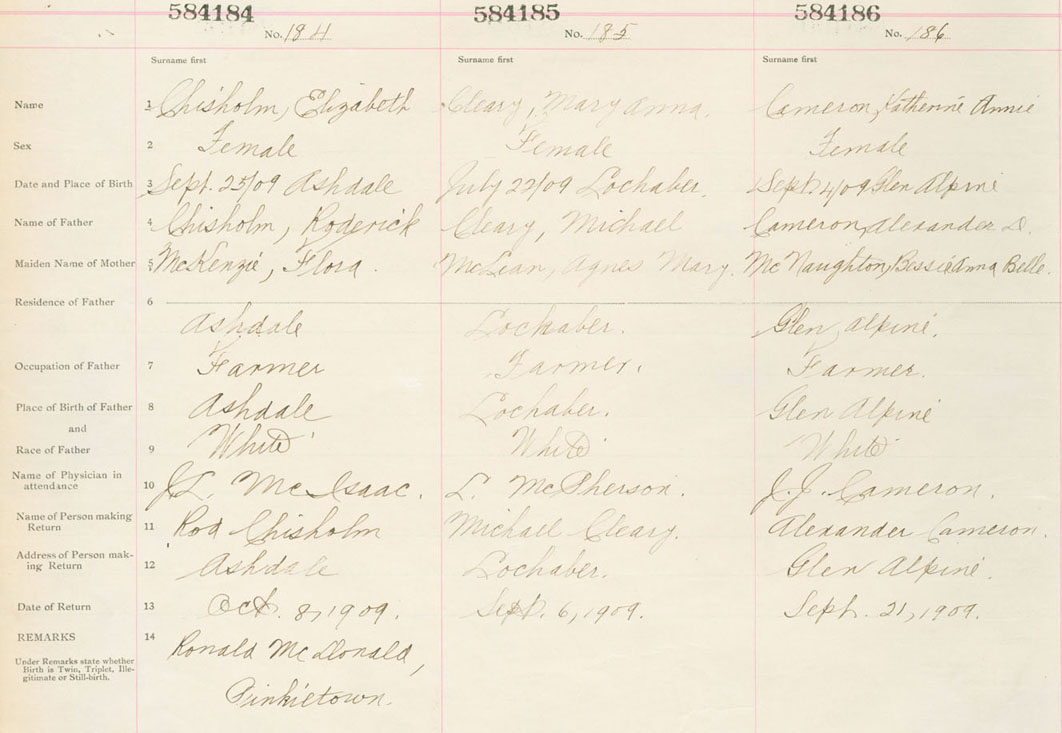 584184 584185 584186
No. 184 No. 185 No. 186
Surname first Surname first Surname first
Name 1 Chisholm, Elizabeth Cleary, Mary Anna. Cameron, Katherine Annie
Sex 2 Female Female Female
Date and Place of Birth 3 Sept. 25/09 Ashdale July 22/09 Lochaber. Sept. 4/09 Glen Alpine
Name of Father 4 Chisholm, Roderick Cleary, Michael Cameron, Alexander D.
Maiden Name of Mother 5 McKenzie, Flora. McLean, Agnes Mary. McNaughton, Bessie Anna Belle.
Residence of Father 6
Ashdale Lochaber. Glen Alpine.
Occupation of Father 7 Farmer Farmer. Farmer.
Place of Birth of Father 8 Ashdale Lochaber. Glen Alpine
and
Race of Father 9 White White White
Name of Physician in
attendance 10 J.L. McIsaac. L. McPherson. J.J. Cameron.
Name of Person making
Return 11 Rod Chisholm Michael Cleary. Alexander Cameron.
Address of Person mak-
ing Return 12 Ashdale Lochaber. Glen Alpine.
Date of Return 13 Oct. 8, 1909. Sept. 6, 1909. Sept. 21, 1909.
REMARKS 14 Ronald McDonald,
Under Remarks state whether
Birth is Twin, Triplet, Ille-
gitimate or Still-birth.
Pinkietown.